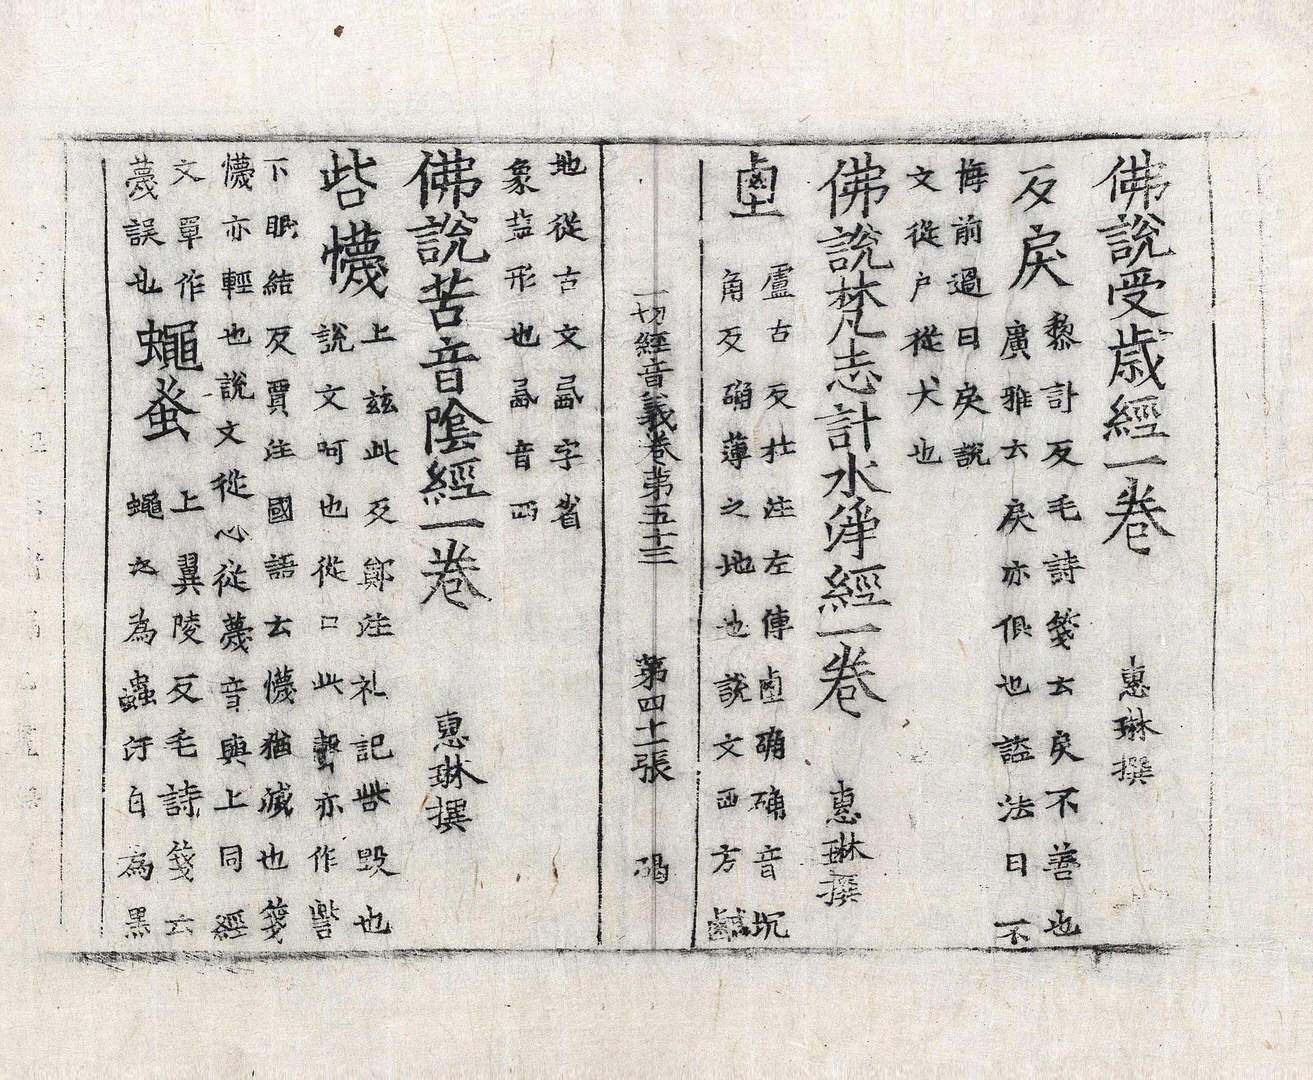 佛說受歲經一卷 惠琳撰
反戾 黎計反毛詩箋云戾不善也
廣雅云戾亦俱也謚法曰不
悔前過曰戾說
文從户從犬也
佛說梵志計水淨經一卷 惠琳撰
𡈋 盧古反杜注左傳𡈋确确音坑
角反确薄之地也說文西方鹹
一切經音義卷第五十三 第四十一張 碣
地從古文㔽字省
象𥂁形也㔽音西
佛說苦音陰經一卷 惠琳撰
呰懱 上兹此反鄭注礼記呰毀也
說文呵也從口此聲亦作訾
下眠結反賈注國語云懱猶滅也箋
懱亦輕也說文從心從蔑音與上同經
文單作
蔑誤也 蠅蚤 上翼陵反毛詩箋云
蠅之為蟲汙白為黑